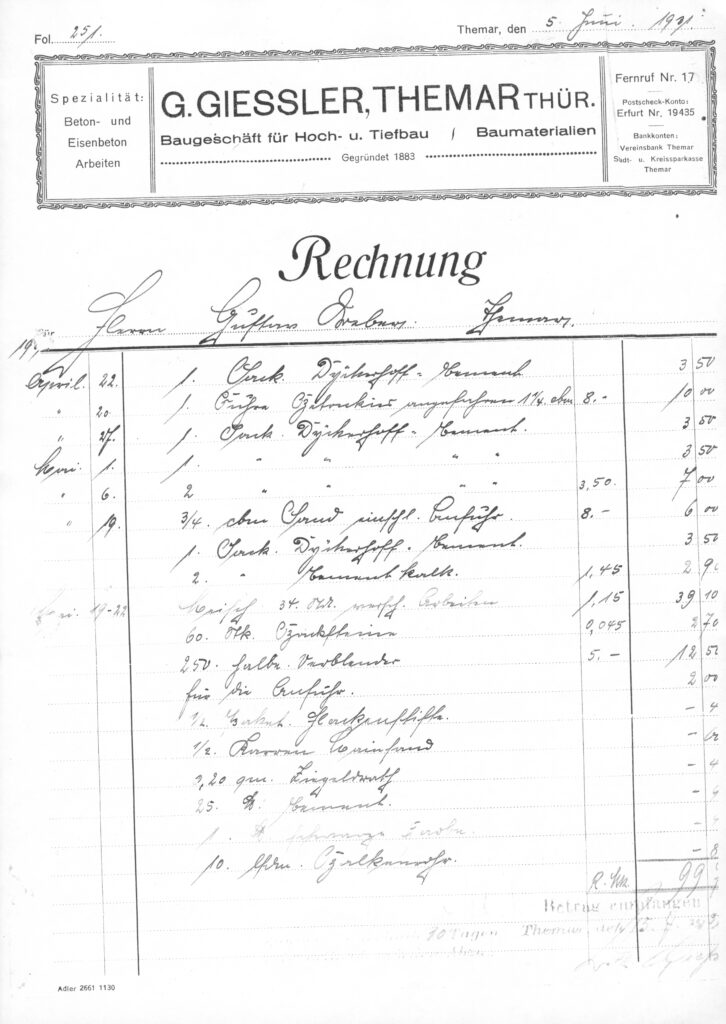 Fol. 251.
Themar, den 5. Juni 1931.
Spezialität:
Beton- und
Eisenbeton
Arbeiten
G. GIESSLER, THEMAR THÜR.
Baugeschäft für Hoch- u. Tiefbau / Baumaterialien
Gegründet 1883
Fernruf Nr. 17
Postscheck-Konto:
Erfurt Nr. 19435
Bankkonten:
Vereinsbank Themar
Stadt- u. Kreissparkasse
Themar
Rechnung
für Herrn Gustav Themar.
19
April. 22. 1. Sack. Dyckerhoff-Zement 3 50
" 20. 1. Fuhre angefahren 1 1/4 cbm 8.- 10 00
" 27. 1. Sack. Dyckerhoff-Zement. 3 50
Mai. 1. 1. " " " " 3 50
" 6. 2 " " " " 3,50. 7 00
" 19. 3/4. cbm Sand einschl. Anfuhr. 8.- 6 00
1. Sack. Dyckerhoff-Zement. 3 50
2. " Zementkalk. 1,45 2 90
19-22 34. Std. versch. Arbeiten 1,15 39 10
60. Stk. Backsteine 0,045 2 70
250. halbe Verblender 5.- 12 50
für die Anfuhr. 2 00
1/2. Paket. Hackenstifte. - 4
1/2. Karren - 6
3,20 qm. Ziegeldrath - 4
25. ℔. Zement.
1. ℔ schwarze Farbe.
10. lfdm. - 8
R.Mk. 99
Betrag empfangen
Tagen Themar, den 15. 7.
Adler 2661 1130